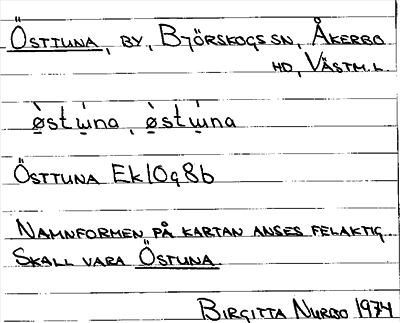 Östtuna, by, Björskogs sn, Åkerbo
hd, Västm.l.
ø̀stẁna, ø̀stẁna
Östtuna Ek10g8b
Namnformen på kartan anses felaktig.
Skall vara Östuna
Birgitta Nurbo 1974